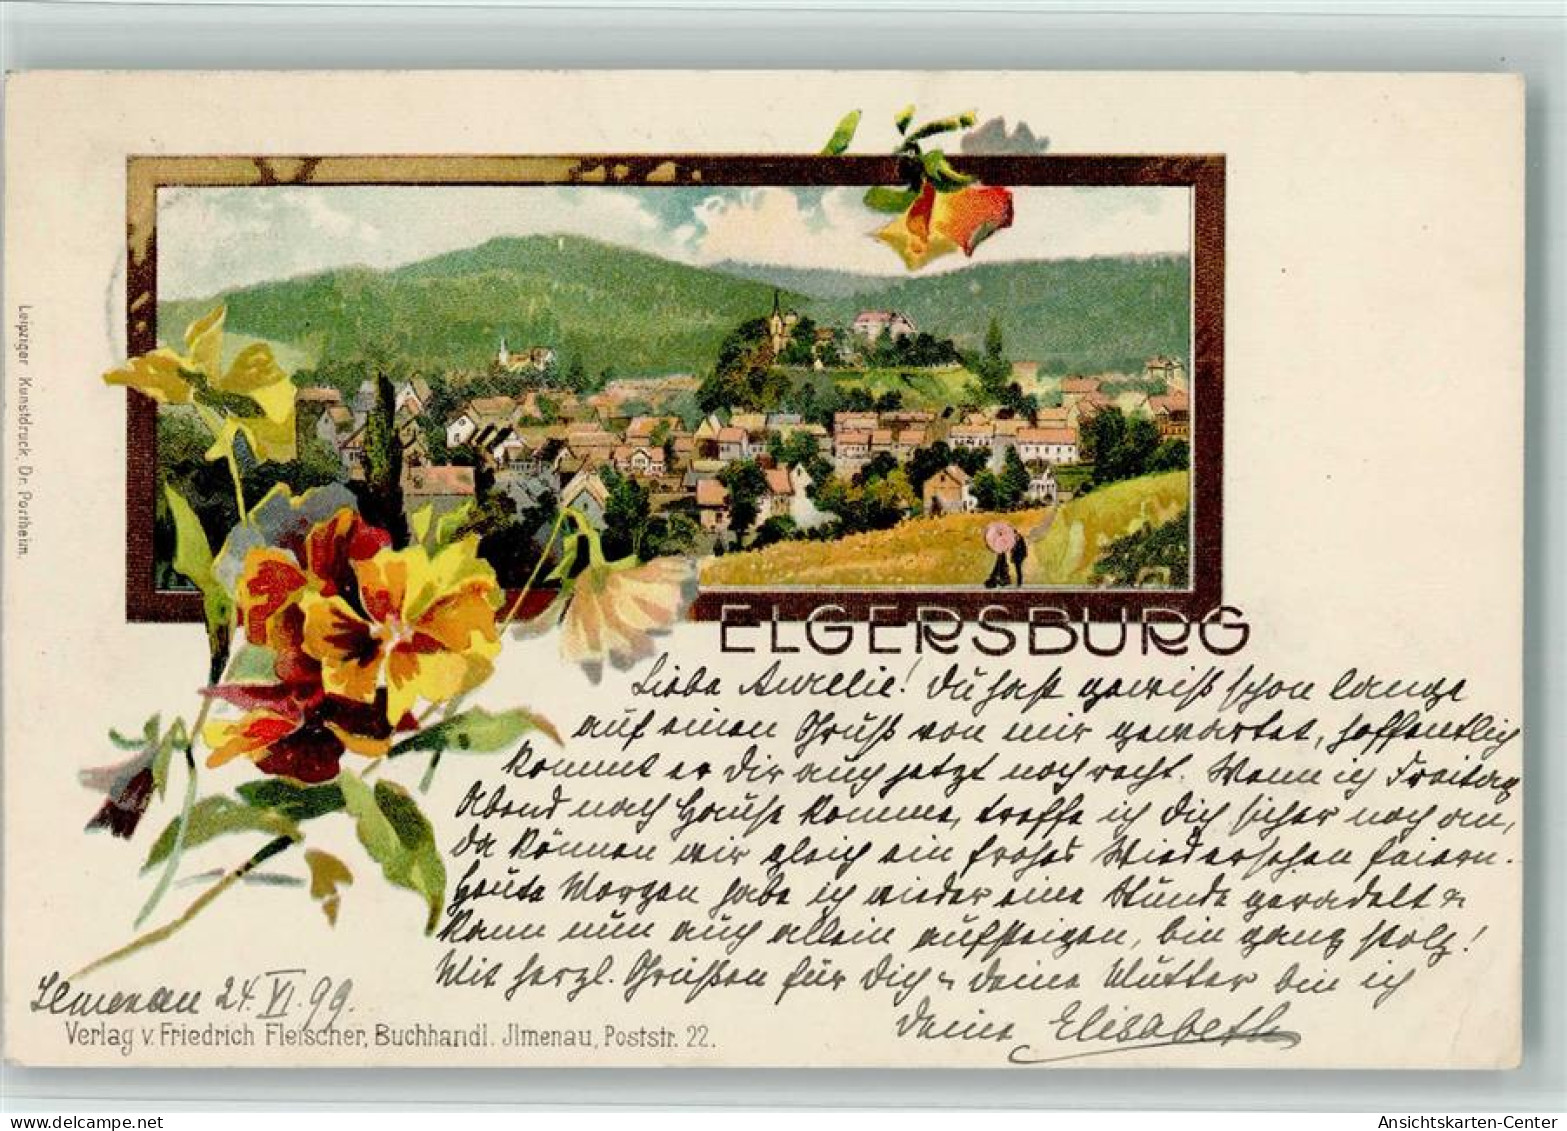 ELGERSBURG
Liebe Aurelie! Du hast gewiß schon lange
auf einen Gruß von mir gewartet, hoffentlich
kommt er Dir auch jetzt noch recht. Wenn ich Freitag
Abend nach Hause komme, treffe ich Dich sicher noch an,
da können wir gleich ein frohes Wiedersehen feiern.
Heute Morgen habe ich wieder eine Stunde geradelt u
kann nun auch allein aufsteigen, bin ganz stolz!
Mit herzl. Grüßen für Dich u Deine Mutter bin ich
Deine Elisabeth
Ilmenau 24. VI. 99.
Verlag v. Friedrich Fleischer, Buchhandl. Jlmenau, Poststr. 22.
Leipziger Kunstdruck. Dr. Portheim.
Ansichtskarten-Center